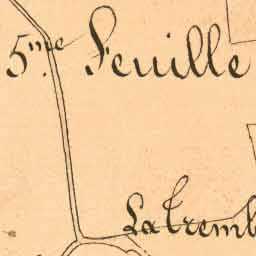 5.me Feuille
La Tremb